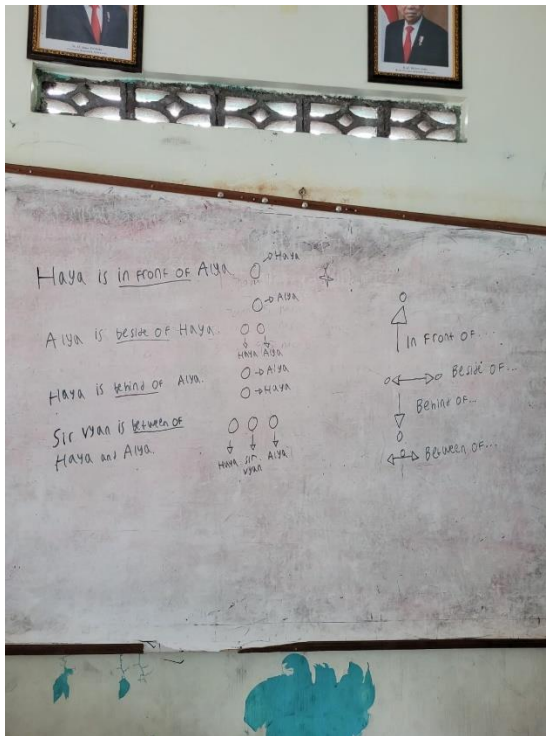 Haya is in front of Alya
Haya
Alya
Alya is beside of Haya.
Haya Alya
Haya is behind of Alya.
Alya
Haya
Sir Vyan is between of
Haya and Alya.
Haya Sir Vyan Alya
In Front of...
Beside of...
Behind of...
Between of...